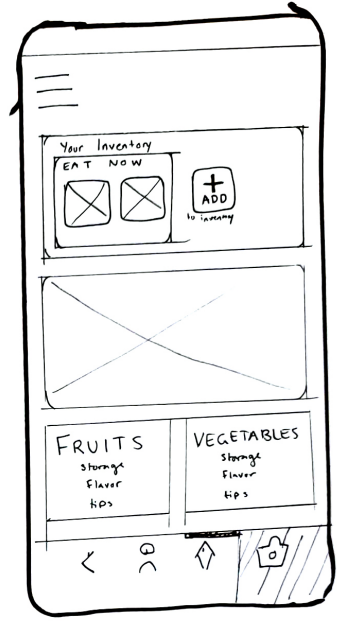 Your Inventory
EAT NOW
ADD
to inventory
FRUITS
storage
flavor
tips
VEGETABLES
Storage
flavor
tips